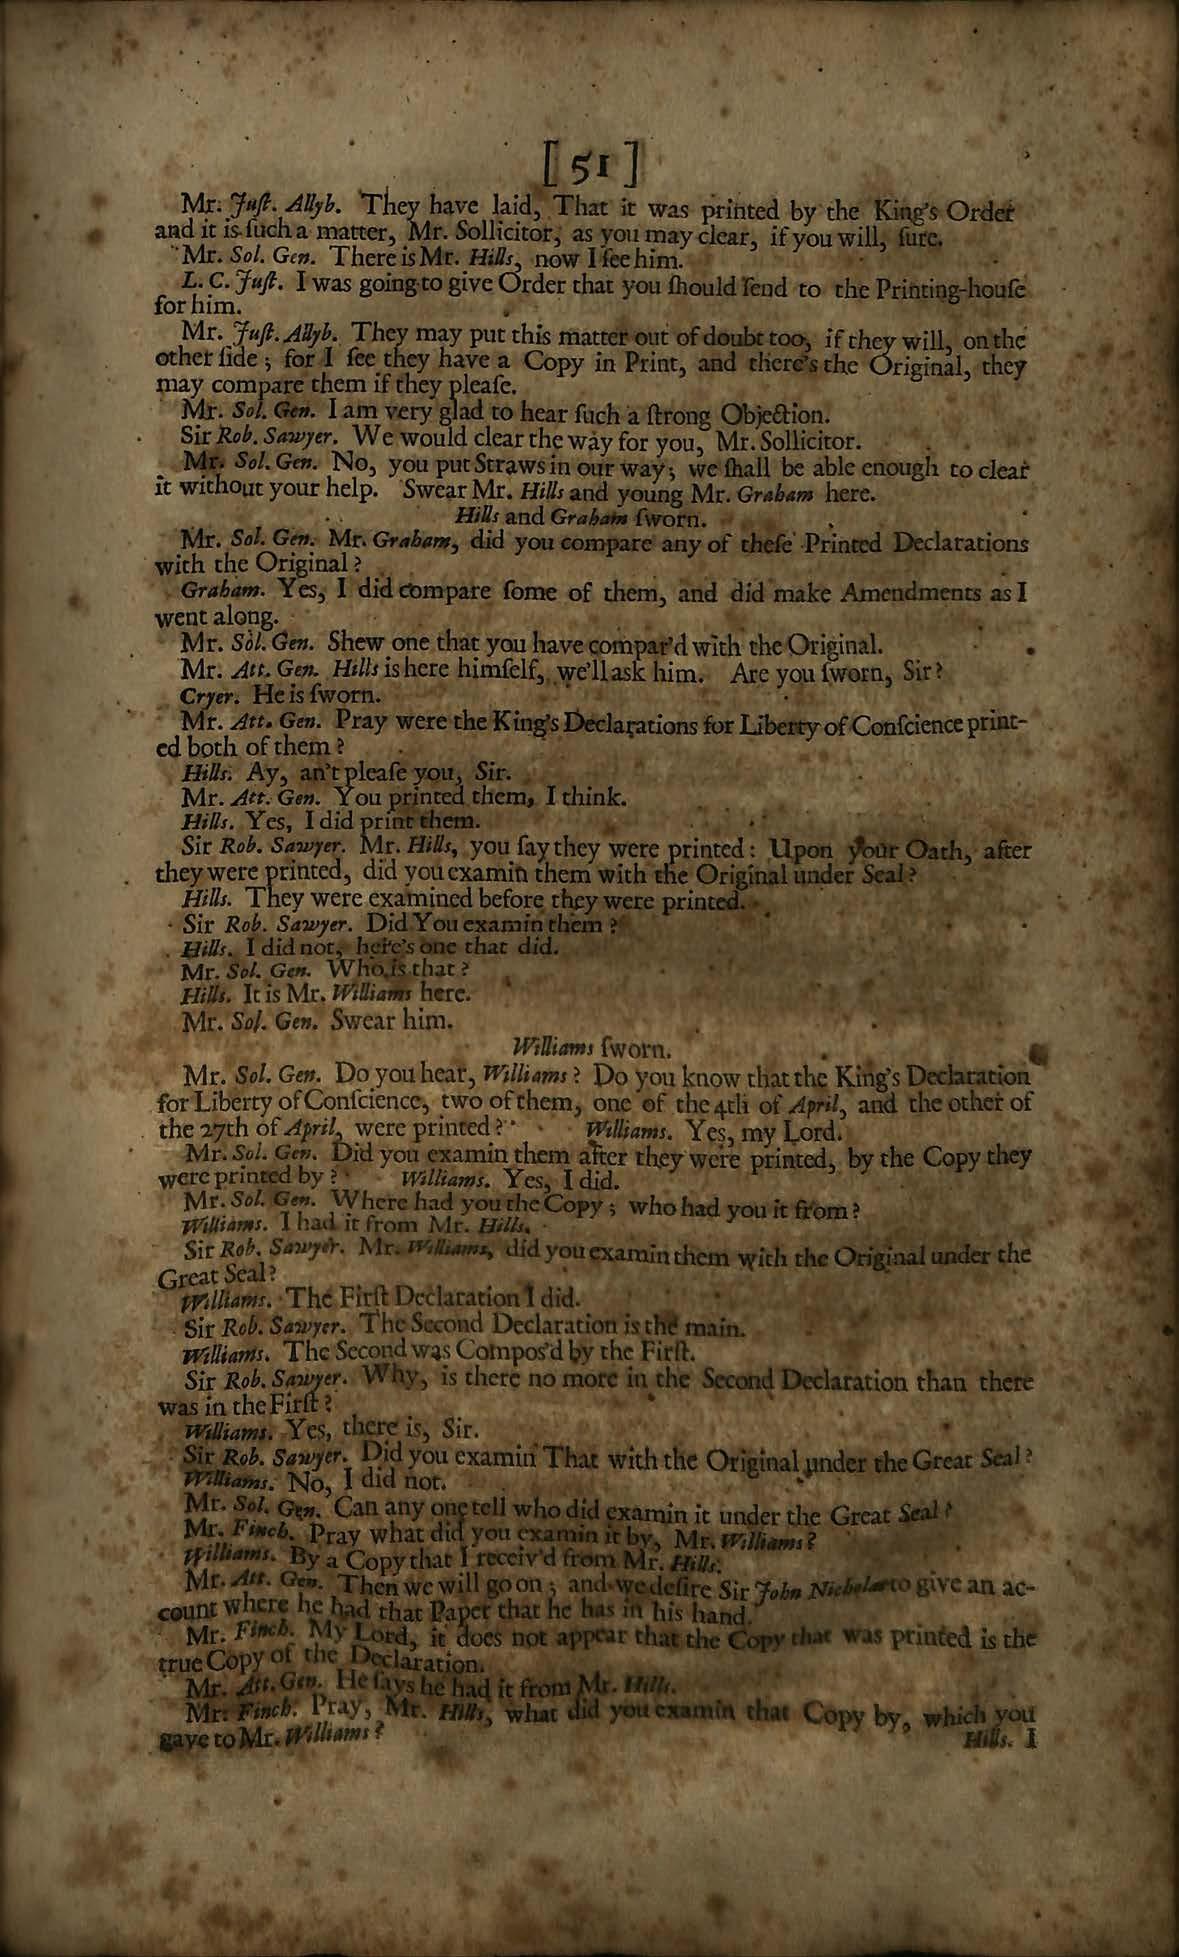 [ 51 ]
Mr. Juſt. Allyb. They have laid, That it was printed by the King's Order
and it is ſuch a matter, Mr. Sollicitor, as you may clear, if you will, ſure.
Mr. Sol. Gen. There is Mr. Hills, now I ſee him.
L. C. Juſt. I was going to give Order that you ſhould ſend to the Printing-houſe
for him.
Mr. Juſt. Allyb. They may put this matter out of doubt too, if they will, on the
other ſide ; for I ſee they have a Copy in Print, and there's the Original, they
may compare them if they pleaſe.
Mr. Sol. Gen. I am very glad to hear ſuch a ſtrong Objection.
Sir Rob. Sawyer. We would clear the way for you, Mr. Sollicitor.
Mr. Sol. Gen. No, you put Straws in our way ; we ſhall be able enough to clear
it without your help. Swear Mr. Hills and young Mr. Graham here.
Hills and Graham ſworn.
Mr. Sol. Gen. Mr. Graham, did you compare any of theſe Printed Declarations
with the Original ?
Graham. Yes, I did compare ſome of them, and did make Amendments as I
went along.
Mr. Sol. Gen. Shew one that you have compar'd with the Original.
Mr. Att. Gen. Hills is here himſelf, we'll ask him. Are you ſworn, Sir ?
Cryer. He is ſworn.
Mr. Att. Gen. Pray were the King's Declarations for Liberty of Conſcience print-
ed both of them ?
Hills. Ay, an't pleaſe you, Sir.
Mr. Att. Gen. You printed them, I think.
Hills. Yes, I did print them.
Sir Rob. Sawyer. Mr. Hills, you ſay they were printed : Upon your Oath, after
they were printed, did you examin them with the Original under Seal ?
Hills. They were examined before they were printed.
Sir Rob. Sawyer. Did You examin them ?
Hills. I did not, here's one that did.
Mr. Sol. Gen. Who is that ?
Hills. It is Mr. Williams here.
Mr. Sol. Gen. Swear him.
Williams ſworn.
Mr. Sol. Gen. Do you hear, Williams ? Do you know that the King's Declaration
for Liberty of Conſcience, two of them, one of the 4th of April, and the other of
the 27th of April, were printed ? Williams. Yes, my Lord.
Mr. Sol. Gen. Did you examin them after they were printed, by the Copy they
were printed by ? Williams. Yes, I did.
Mr. Sol. Gen. Where had you the Copy ; who had you it from ?
Williams. I had it from Mr. Hills.
Sir Rob. Sawyer. Mr. Williams, did you examin them with the Original under the
Great Seal ?
Williams. The Firſt Declaration I did.
Sir Rob. Sawyer. The Second Declaration is the main.
Williams. The Second was Compos'd by the Firſt.
Sir Rob. Sawyer. Why, is there no more in the Second Declaration than there
was in the Firſt ?
Williams. Yes, there is, Sir.
Sir Rob. Sawyer. Did you examin That with the Original under the Great Seal ?
Williams. No, I did not.
Mr. Sol. Gen. Can any one tell who did examin it under the Great Seal ?
Mr. Finch. Pray what did you examin it by, Mr. Williams ?
Williams. By a Copy that I receiv'd from Mr. Hills.
Mr. Att. Gen. Then we will go on ; and we deſire Sir John Nicholas to give an ac-
count where he had that Paper that he has in his hand.
Mr. Finch. My Lord, it does not appear that the Copy that was printed is the
true Copy of the Declaration.
Mr. Att. Gen. He ſays he had it from Mr. Hills.
Mr. Finch. Pray, Mr. Hills, what did you examin that Copy by, which you
gave to Mr. Williams ?
Hills. I